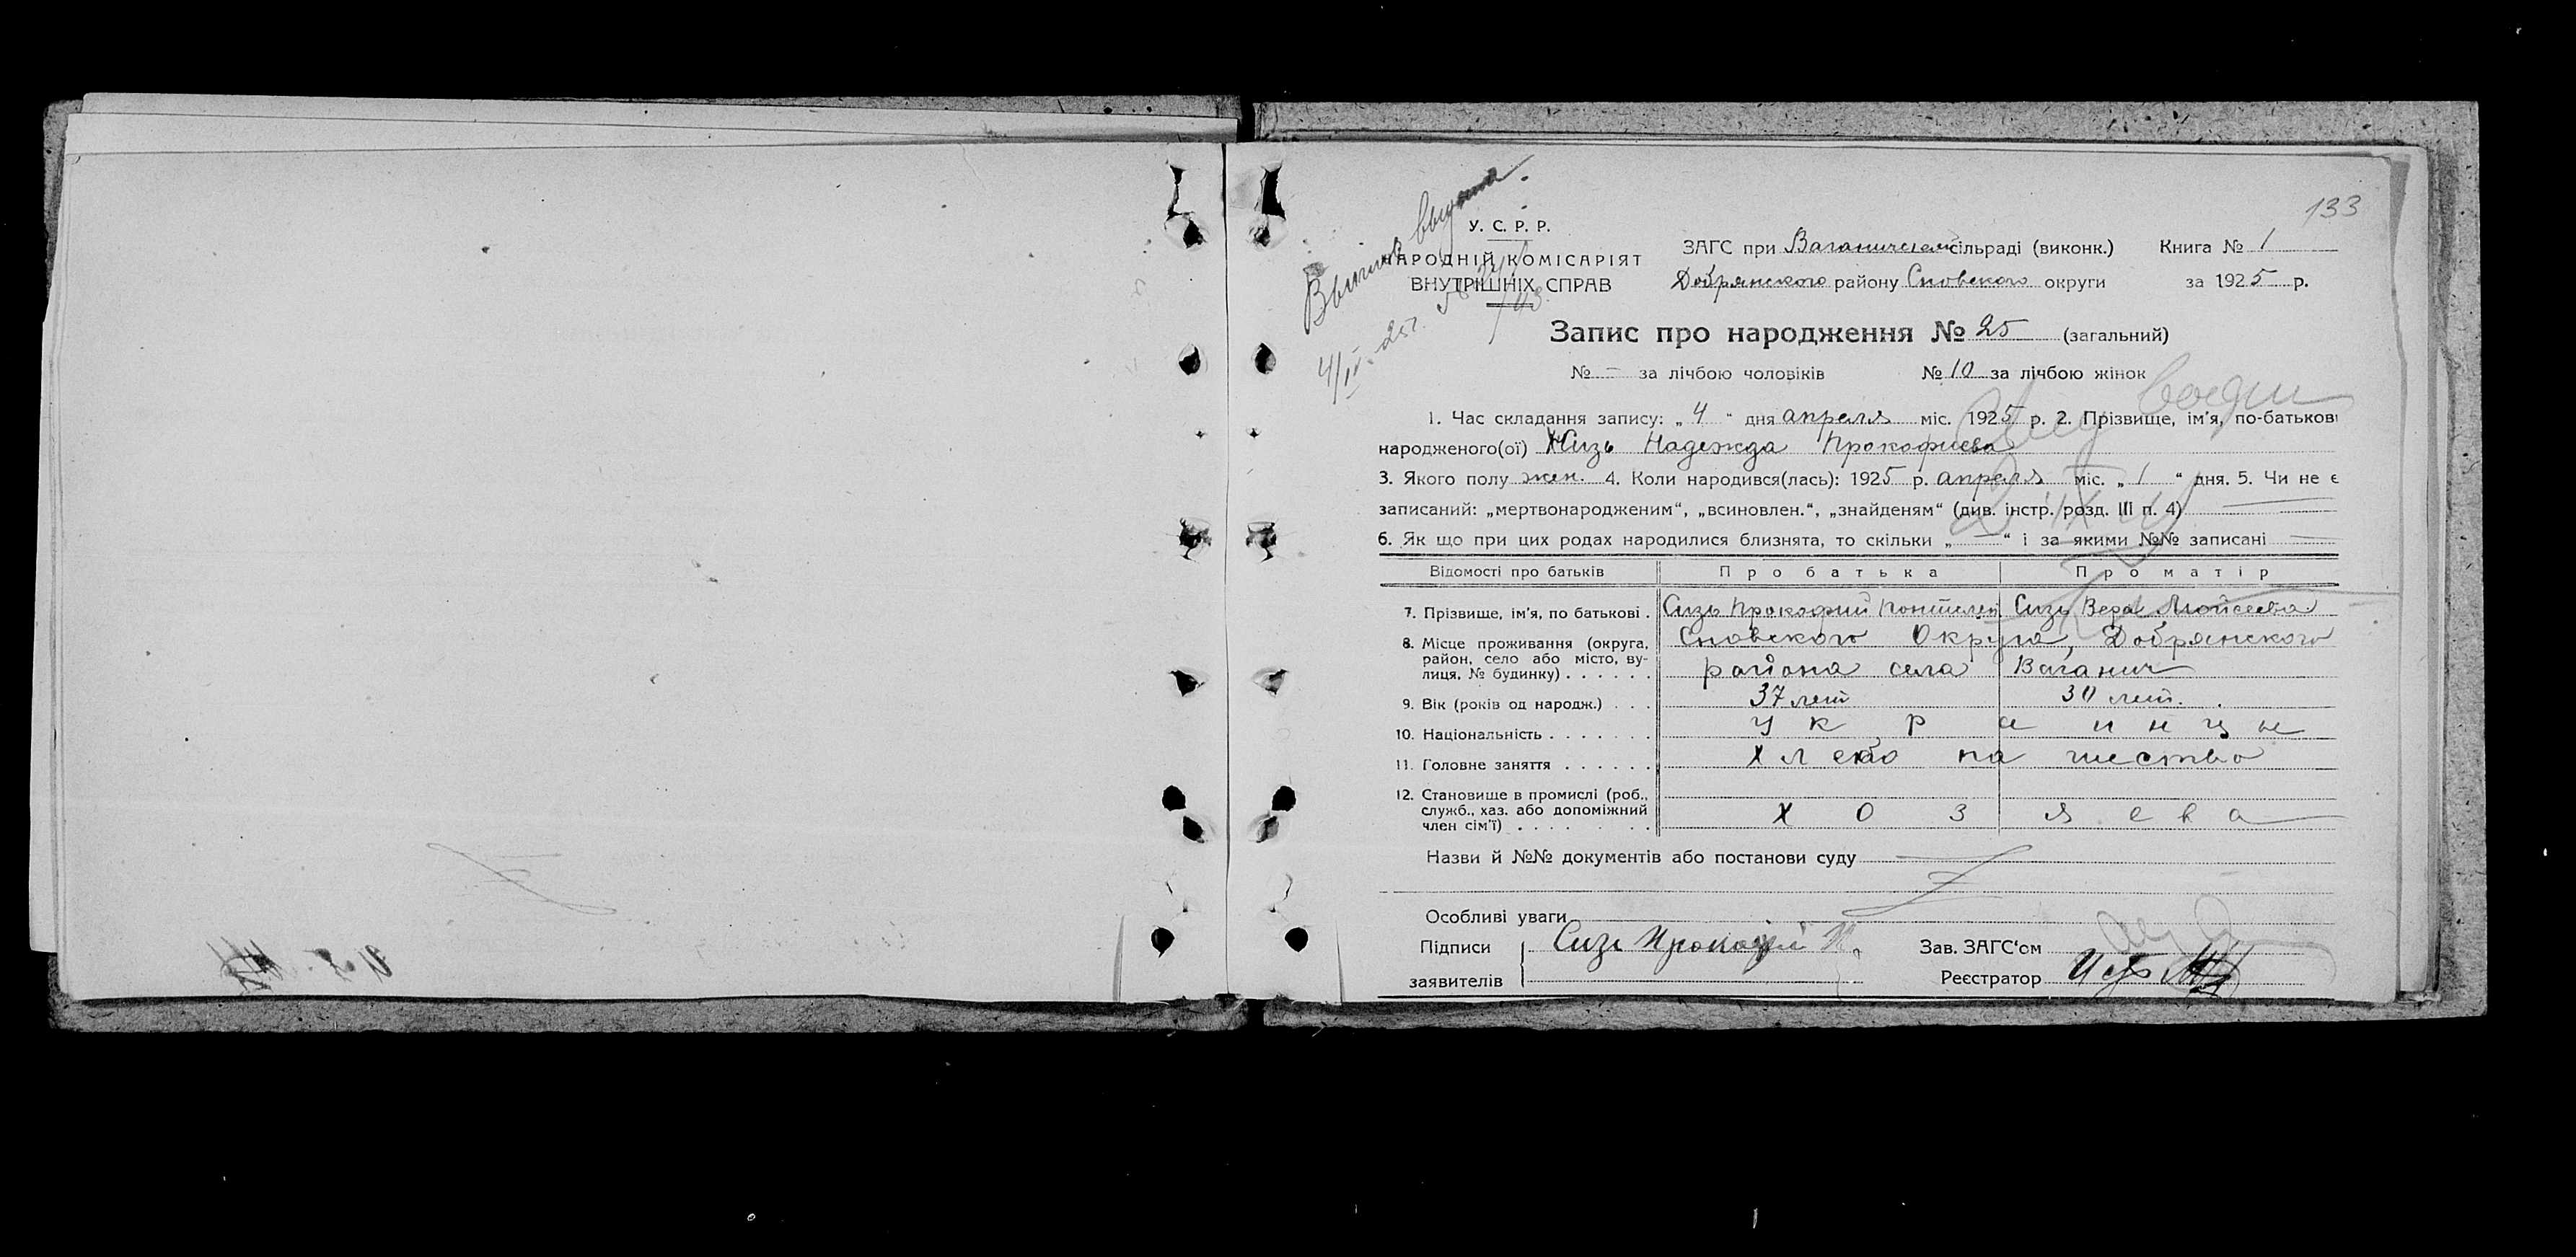 133
Выписка выдана.
4/IV-25 г. №
У. С. Р. Р.
НАРОДНІЙ КОМІСАРІЯТ
ВНУТРІШНІХ СПРАВ
ЗАГС при Ваганичском сільраді (виконк.) Книга № 1
Добрянского району Сновского округи за 1925 р.
Запис про народження № 25 (загальний)
№ - за лічбою чоловіків № 10 за лічбою жінок
1. Час складання запису: „ 4 “ дня апреля міс. 1925 р. 2. Прізвище, ім’я, по-батькові
народженого(ої) Сизь Надежда Прокофиева
3. Якого полу жен. 4. Коли народився(лась): 1925 р. апреля міс. „ 1 “ дня. 5. Чи не є
записаний: „мертвонародженим“, „всиновлен.“, „знайденям“ (див. інстр. розд. III п. 4)
6. Як що при цих родах народилися близнята, то скільки „ — “ і за якими №№ записані —
Відомості про батьків Про батька Про матір
7. Прізвище, ім’я, по батькові . Сизь Прокофий Сизь Вера Мойсеева
8. Місце проживання (округа, район, село або місто, вулиця, № будинку) . . . . . . Сновского Округа, Добрянского
района села Ваганич
9. Вік (років од народж.) . . . 37 лет 30 лет.
10. Національність . . . . . . . украинцы
11. Головне заняття . . . . . . хлебопашество
12. Становище в промислі (роб., служб., хаз. або допоміжний член сім’ї) . . . . . . . хозяева
Назви й №№ документів або постанови суду
Особливі уваги
Підписи Сизь Прокофий П. Зав. ЗАГС‘ом
заявителів Реєстратор